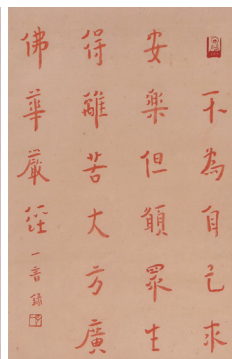 不為自己求
安樂但願眾生
得離苦大方廣
佛華嚴經
一音錄